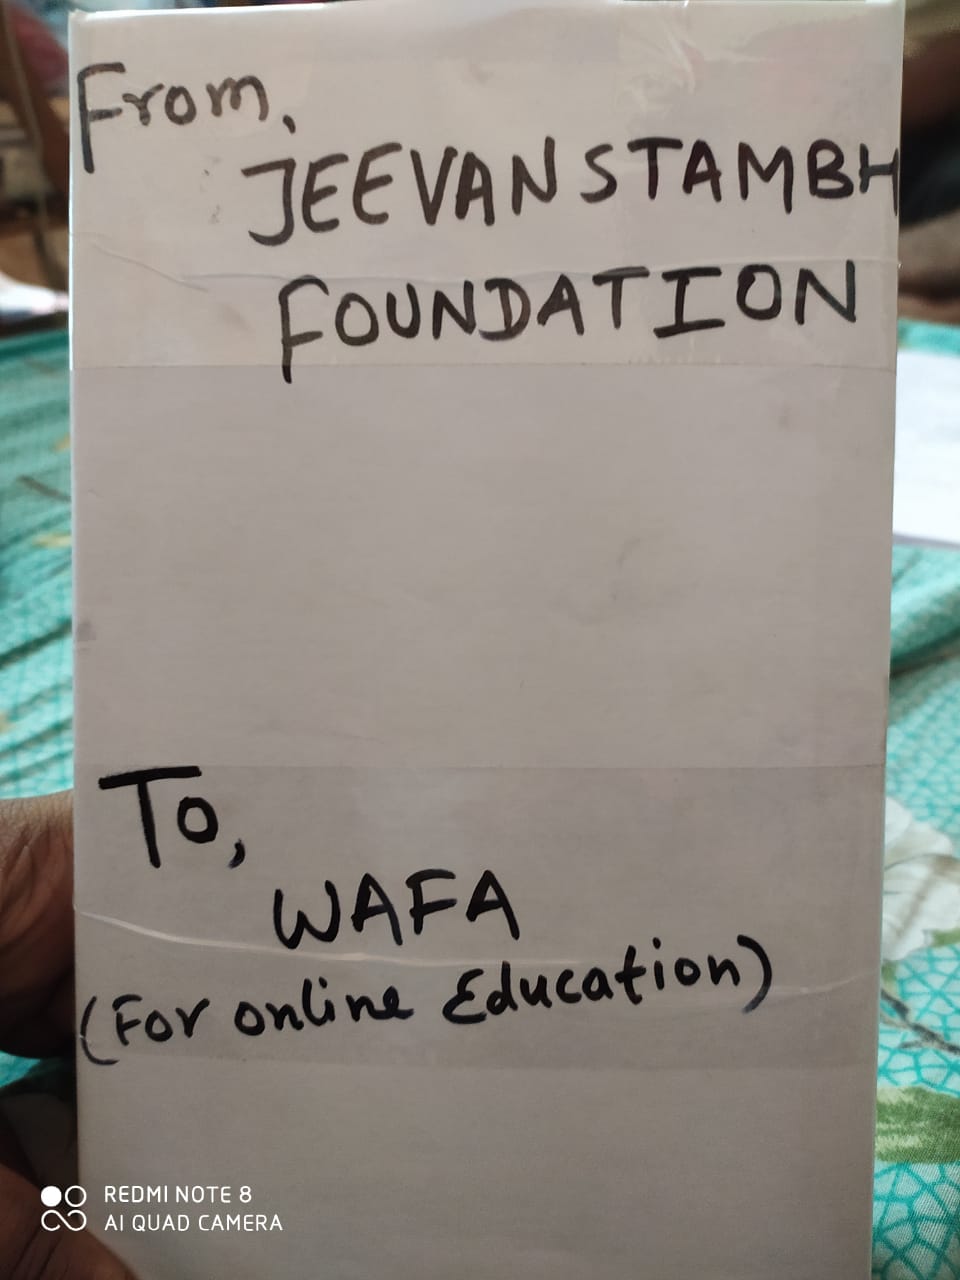 From,
JEEVANSTAMBH
FOUNDATION
To,
WAFA
(For online Education)
REDMI NOTE 8
AI QUAD CAMERA